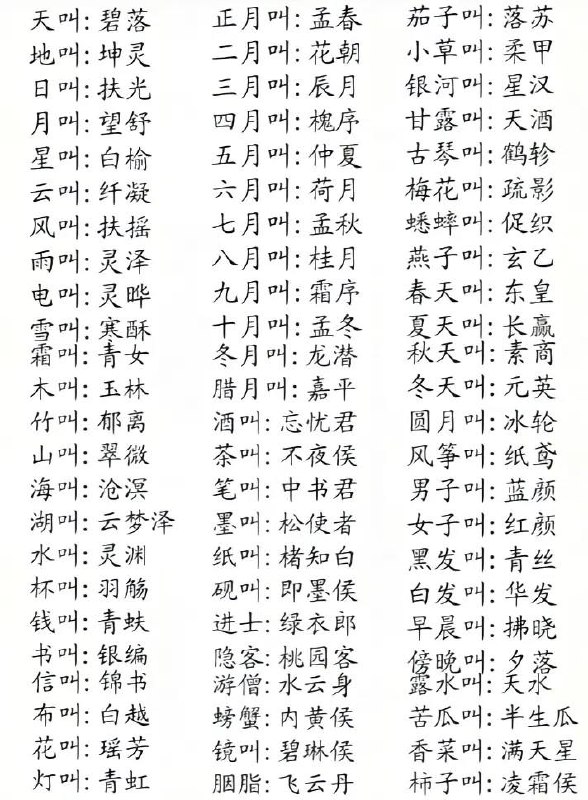 天叫:碧落
地叫:坤灵
日叫:扶光
月叫:望舒
星叫:白榆
云叫:纤凝
风叫:扶摇
雨叫:灵泽
电叫:灵晔
雪叫:寒酥
霜叫:青女
木叫:玉林
竹叫:郁离
山叫:翠微
海叫:沧溟
湖叫:云梦泽
水叫:灵渊
杯叫:羽觞
钱叫:青蚨
书叫:银编
信叫:锦书
布叫:白越
花叫:瑶芳
灯叫:青虹
正月叫:孟春
二月叫:花朝
三月叫:辰月
四月叫:槐序
五月叫:仲夏
六月叫:荷月
七月叫:孟秋
八月叫:桂月
九月叫:霜序
十月叫:孟冬
冬月叫:龙潜
腊月叫:嘉平
酒叫:忘忧君
茶叫:不夜侯
笔叫:中书君
墨叫:松使者
纸叫:楮知白
砚叫:即墨侯
进士:绿衣郎
隐客:桃园客
游僧:水云身
螃蟹:内黄侯
镜叫:碧琳侯
胭脂:飞云丹
茄子叫:落苏
小草叫:柔甲
银河叫:星汉
甘露叫:天酒
古琴叫:鹤轸
梅花叫:疏影
蟋蟀叫:促织
燕子叫:玄乙
春天叫:东皇
夏天叫:长赢
秋天叫:素商
冬天叫:元英
圆月叫:冰轮
风筝叫:纸鸢
男子叫:蓝颜
女子叫:红颜
黑发叫:青丝
白发叫:华发
早晨叫:拂晓
傍晚叫:夕落
露水叫:天水
苦瓜叫:半生瓜
香菜叫:满天星
柿子叫:凌霜侯